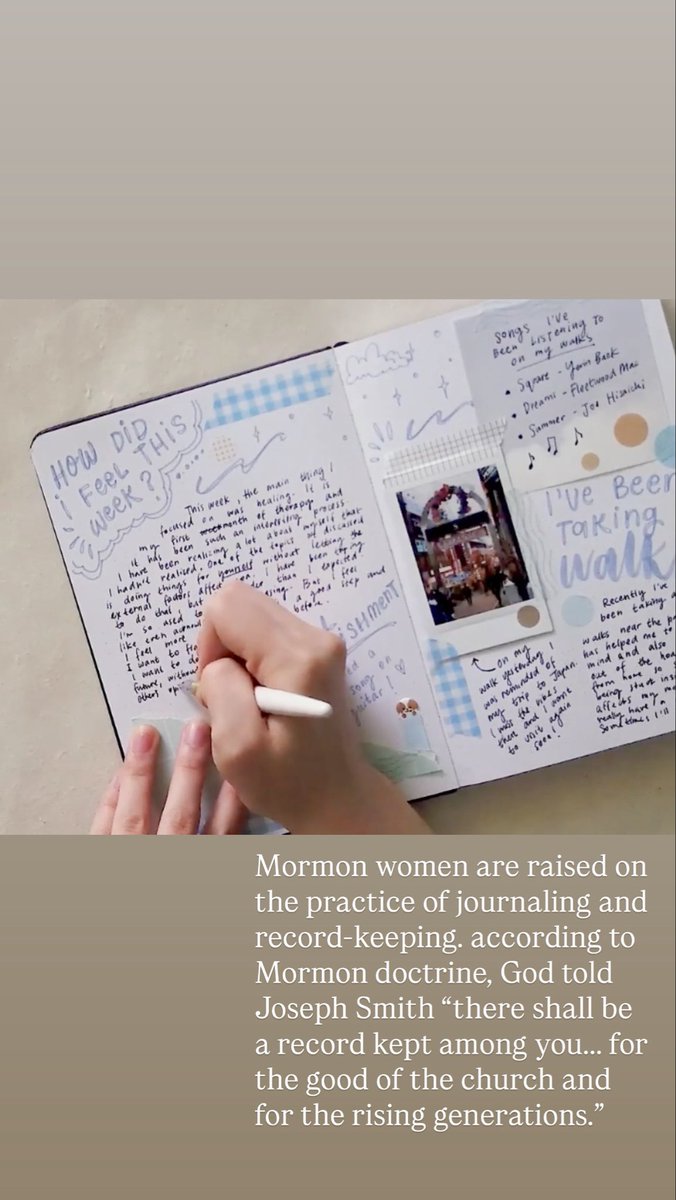 HOW DID
I FEEL THIS
WEEK?
This week, the main thing I
focused on was healing. It is
my first month of therapy and
it has been such an interesting process.
I have been realizing a lot about myself that
I hadn't realised. One of the topics I discussed
is doing things for yourself without letting the
external factors affect you. I have been trying
to do that, but it is harder than I expected
I'm so used to
like even
I feel more
I want to
I want to
future, without
others'
a good step and
before.
ISHMENT
song on
guitar!
SONGS I'VE
BEEN LISTENING TO
ON MY WALKS
• Square - Yerin Baek
• Dreams - Fleetwood Mac
• Summer - Joe Hisaishi
I'VE BEEN
TAKING
WALK
on my
walk yesterday I
was reminded of
my trip to Japan.
I miss the vibes
there and I want
to visit again
soon!
Recently I've
been taking a
walks near the pa
has helped me to
mind and also
out of the hou
from here so
being stuck insi
affects my mo
really have m
Sometimes I'll
Mormon women are raised on
the practice of journaling and
record-keeping. according to
Mormon doctrine, God told
Joseph Smith “there shall be
a record kept among you... for
the good of the church and
for the rising generations.”